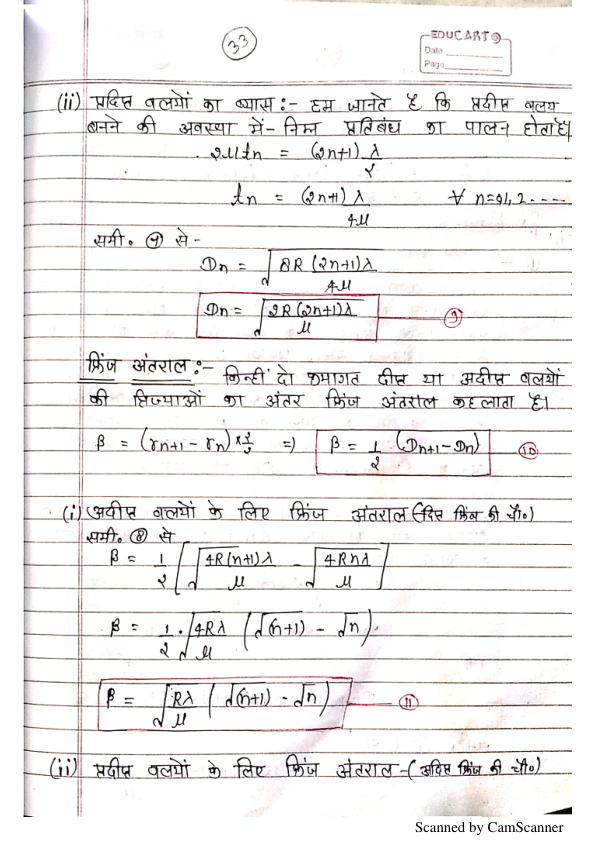 33
EDUCART
Date
Page
(ii) प्रदिप्त वलयों का व्यास :- हम जानते है कि प्रदीप्त वलय
बनने की अवस्था में- निम्न प्रतिबंध का पालन होता है।
2μtn = (2n+1) λ/2
tn = (2n+1) λ/4μ ∀ n=0,1,2.....
समी. (4) से -
Dn = √(8R (2n+1)λ/4μ)
Dn = √(2R (2n+1)λ/μ) — (9)
फ्रिंज अंतराल :- किन्हीं दो क्रमागत दीप्त या अदीप्त वलयों
की त्रिज्याओं का अंतर फ्रिंज अंतराल कहलाता है।
β = (rn+1 - rn) × 2/2 => β = 1/2 (Dn+1 - Dn) (10)
(i) अदीप्त वलयों के लिए फ्रिंज अंतराल (दिप्त फ्रिंज की चौ०)
समी. (8) से
β = 1/2 [√(4R(n+1)λ/μ) - √(4Rnλ/μ)]
β = 1/2 . √(4Rλ/μ) (√(n+1) - √n)
β = √(Rλ/μ) (√(n+1) - √n) — (11)
(ii) प्रदीप्त वलयों के लिए फ्रिंज अंतराल - (अदिप्त फ्रिंज की चौ०)
Scanned by CamScanner